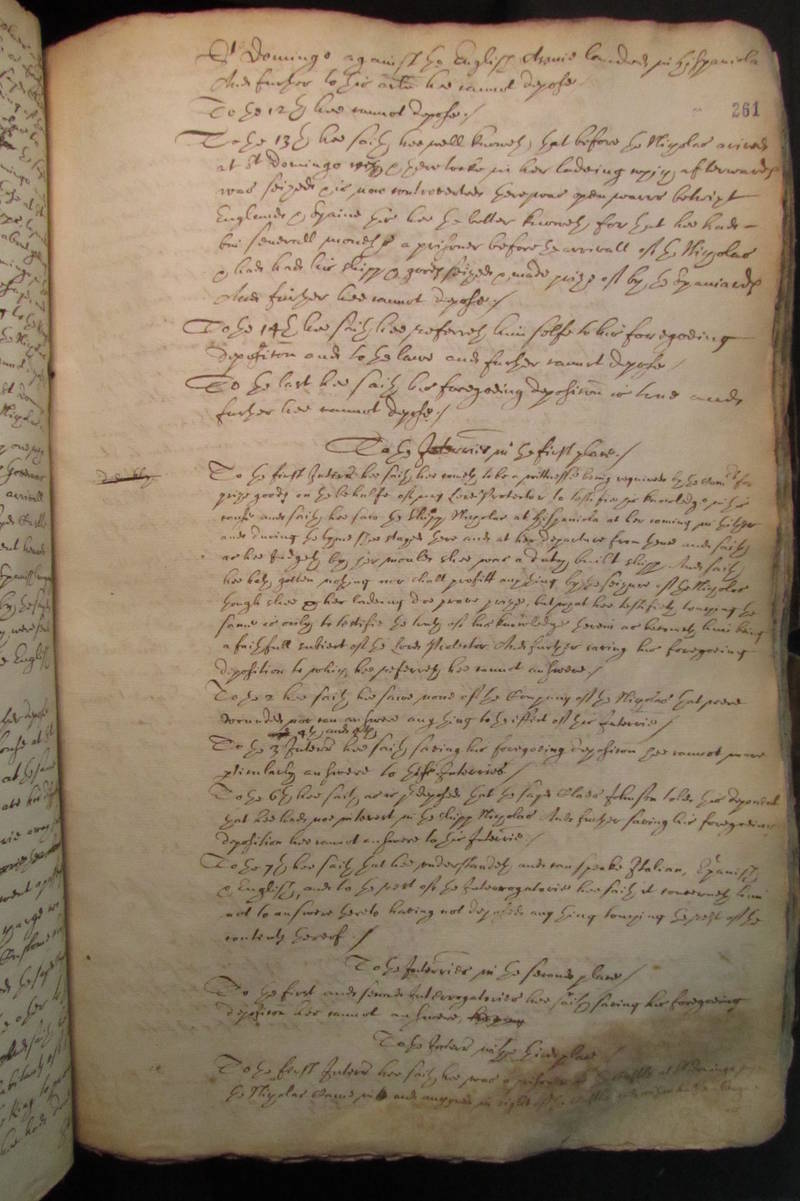 261
St Domingo against the English Armie landed in Hispaniola
And further to his arle hee cannot depose
To the 12th hee cannot depose./
To the 13th hee saith hee well knoweth, that before the Nicolas arived
at St Domingo and there tooke in her ladeing which afterwards
was seized is now controverted there was open warr betwixt
England & Spaine this hee the better knoweth for that hee had
bin severall moneths a prisoner before the arrivall of the Nicolas
& had had his shipp & goods seized & made prize of by the Spaniards
And further hee cannot depose./
To the 14th hee saith hee referreth him selfe to his foregoeing
deposition and to the lawe and further cannot depose
To the last hee saith his foregoeing deposition is true and
further hee cannot depose./
To the Interries in the first place./
To the first Interr hee saith hee cometh to be a witnesse being required by the
prize goods on the behalfe of my Lord Protector to testifie his knowledge in this
cause and saith hee saw the shipp Nicolas at Hispaniola at her coming in thither
and during the tyme shee stayed there and at her departure from thence and saith
as hee Judgeth by her moulde shee was a dutch built shipp And saith
hee hath gotten nothing nor shall profitt any thing by the seizure of the Nicolas
though shee & her ladeing doe prove prize, but what hee testifieth touching the
same is only to testifie the truth of his knowledge herein as becometh him being
a faithfull subiect of the Lord Protector And further saving his foregoeing
deposition to which hee referreth hee cannot answere./
To the 2 hee saith hee saw none of the Company of the Nicolas that were
wounded nor can answere any thing to the effect of this Interrie /
4th and 5th
To the 3 Interr hee saith saving his foregoeing deposition hee cannot more
pticularly answere to these Interries /
To the 6th hee saith as is predeposed that the sayd Claes Johnson tolde this deponent
that hee had noe interest in the shipp Nicolas And further saving his foregoeing
deposition hee cannot answere to this Interrie./
To the 7th hee saith that hee understandeth and can speake Italian, Spanish
& English, and to the rest of the Interrogatories hee saith it concerneth him
not to answere hereto having not deposed any thing touching the rest of the
contents thereof ./
To the Interries in the second place /
To the first and second Interrogatories hee saith saving his foregoeing
deposition hee cannot answere.
To the Interr in the third place /
To the first Interr hee saith hee was a prisoner in the Castle at St Domingo
the Nicolas came in and anchored in sight of the Castle